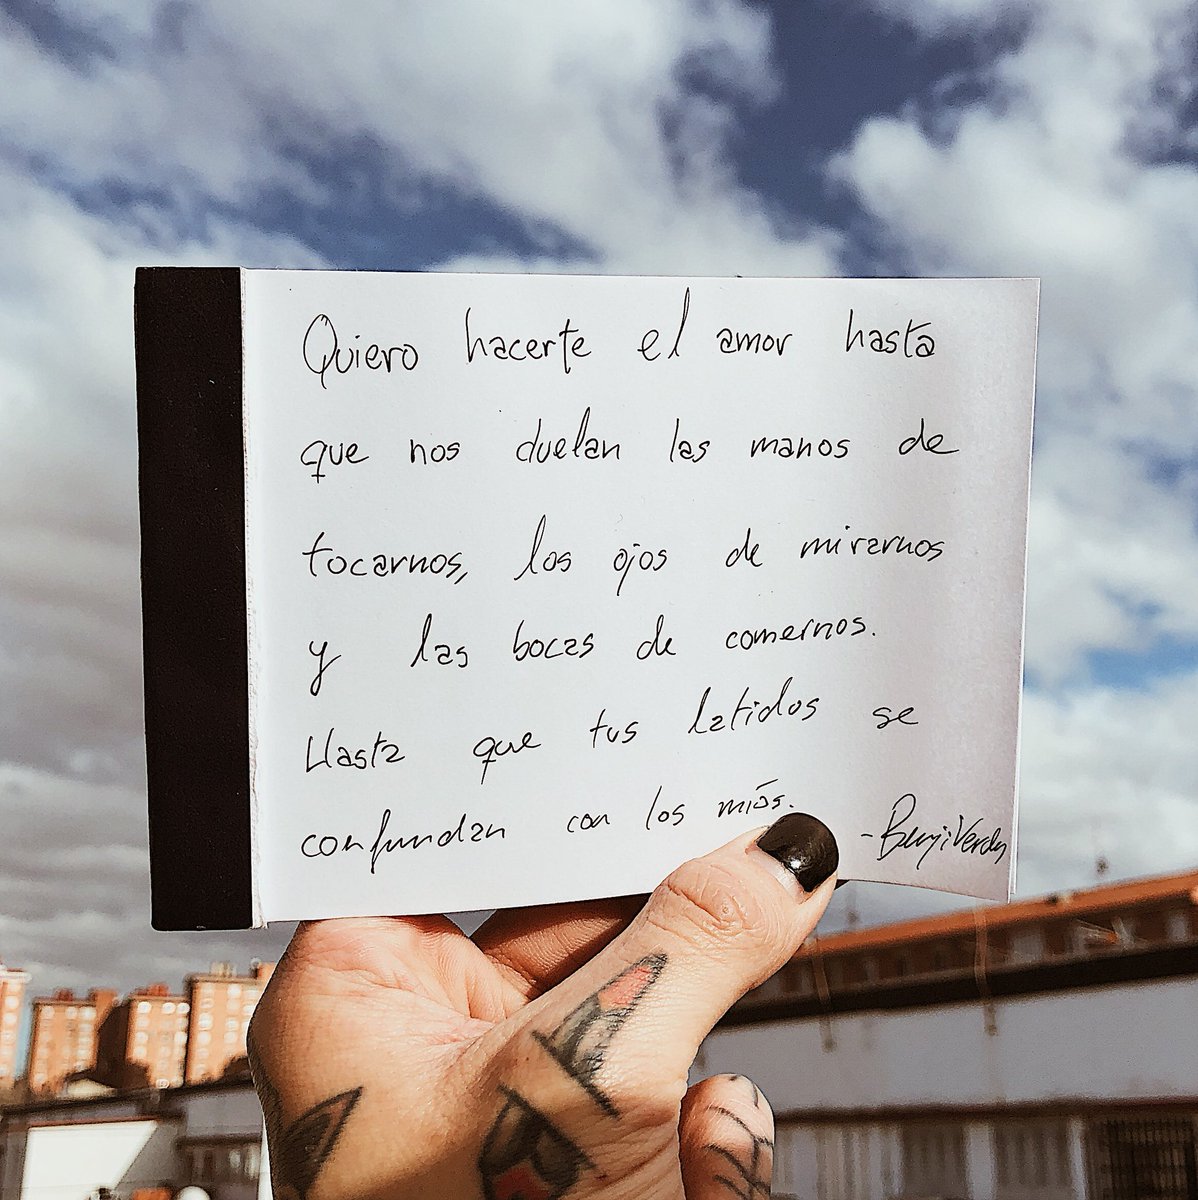 Quiero hacerte el amor hasta
que nos duelan las manos de
tocarnos, los ojos de mirarnos
y las bocas de comernos.
Hasta que tus latidos se
confundan con los míos.
-Benji Verdes